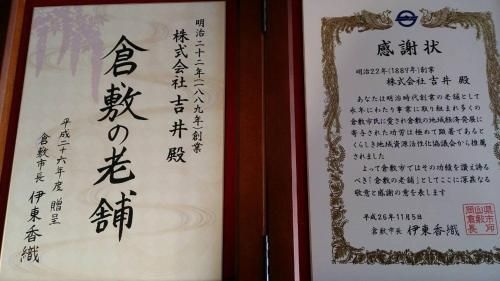 明治二十二年(一八八九年)創業
株式会社 吉井 殿
倉敷の老舗
平成二十六年度 贈呈
倉敷市長 伊東香織
感謝状
明治22年(1889年)創業
株式会社 吉井 殿
あなたは明治時代創業の老舗として
永年にわたり事業に取り組まれ多くの
倉敷市民に愛され倉敷の地域経済発展に
寄与された功労は極めて顕著であると
くらしき地域資源活性化協議会から推薦
されました
よって倉敷市ではその功績を讃え誇る
べき「倉敷の老舗」としてここに深甚なる
敬意と感謝の意を表します
平成26年11月5日
倉敷市長 伊東香織
岡山県
倉敷市
長印